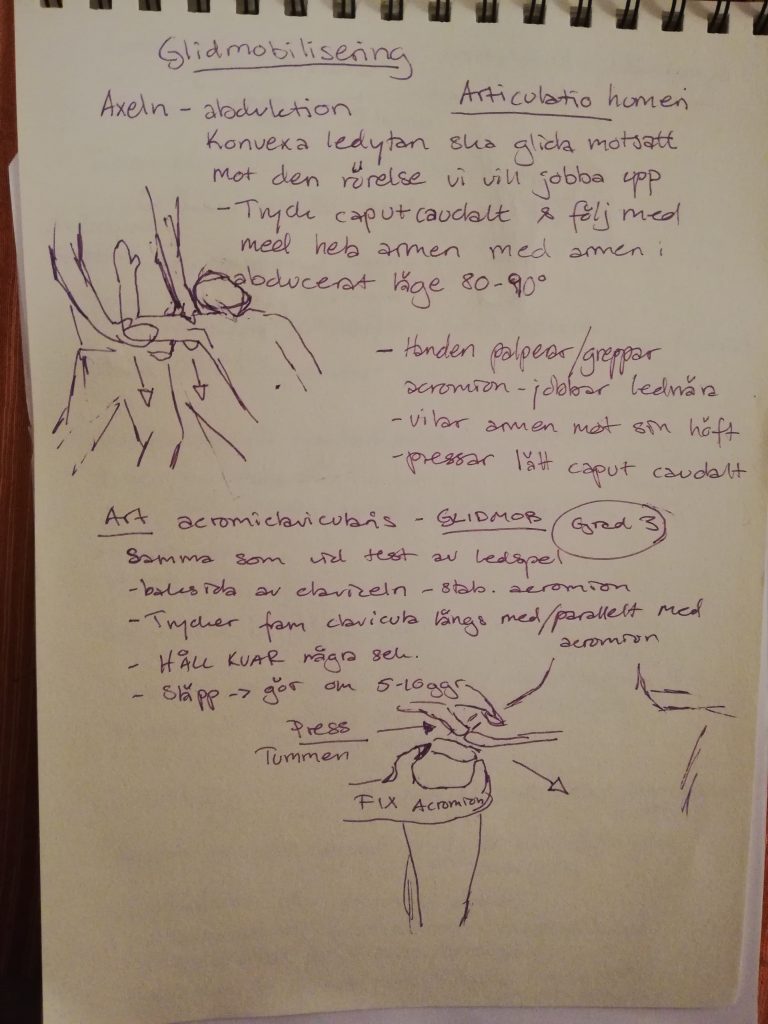 Glidmobilisering
Axeln - abduktion
Articulatio humeri
Konvexa ledytan ska glida motsatt
mot den rörelse vi vill jobba upp
- Tryck caput caudalt & följ med
med hela armen med armen i
abducerat läge 80-90°
- Handen palperar/greppar
acromion - jobbar lednära
- vilar armen mot sin höft
- pressar lätt caput caudalt
Art acromiclavicularis - GLIDMOB Grad 3
Samma som vid test av ledspel
- baksida av clavikeln - stab. acromion
- Trycker fram clavicula längs med/parallellt med
acromion
- HÅLL KVAR några sek.
- Släpp -> gör om 5-10ggr
Press
Tummen
FIX Acromion